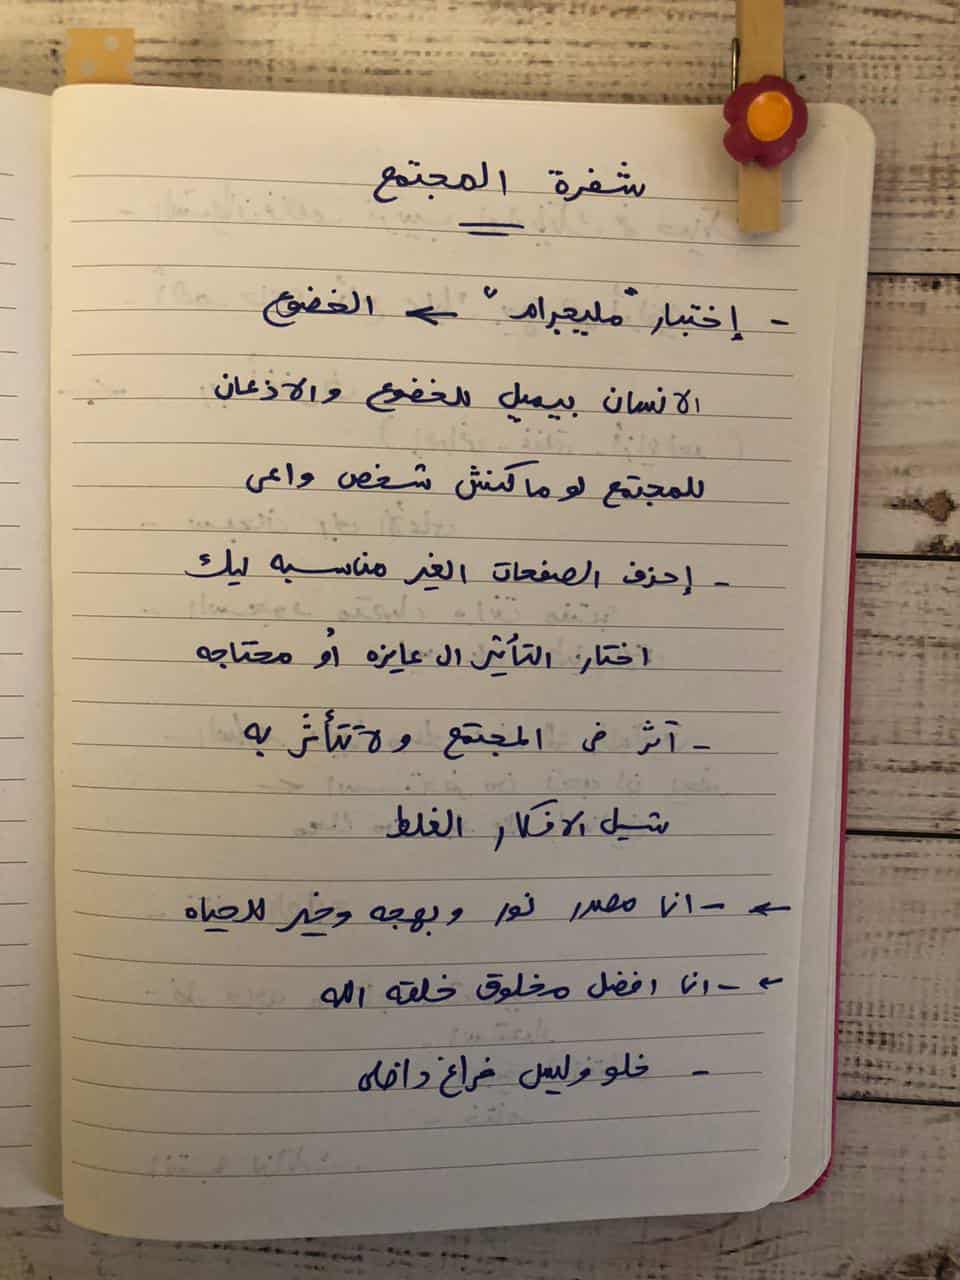 شفرة المجتمع
- إختبار "مليجرام" ← الخضوع
الانسان بيميل للخضوع والاذعان
للمجتمع لو ماكنش شخص واعى
- إحذف الصفحات الغير مناسبه ليك
اختار التأثير ال عايزه أو محتاجه
- آثر فى المجتمع ولا تتأثر به
شيل الافكار الغلط
← - انا مصدر نور وبهجه وخير للحياه
← - انا افضل مخلوق خلقه الله
- خلو وليس فراغ داخلى